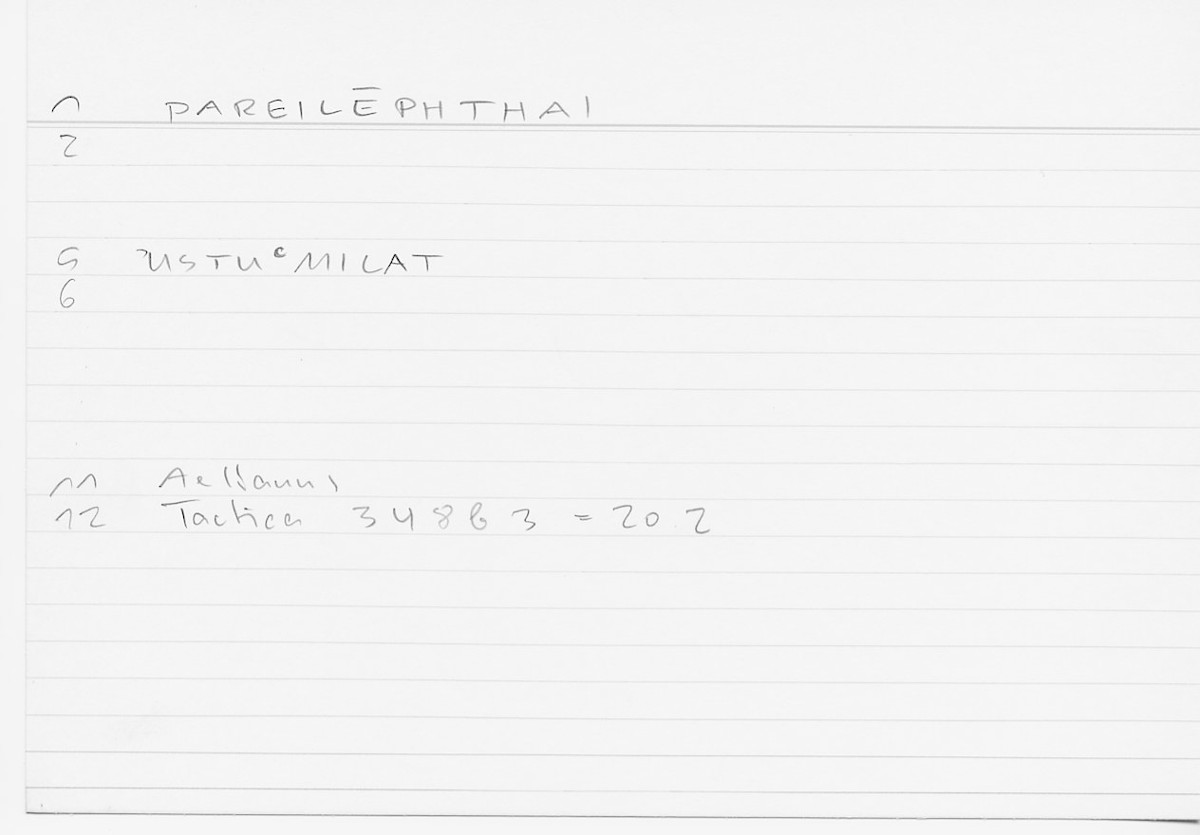 1 PAREILĒPHTHAI
2
5 ʾUSTUᶜMILAT
6
11 Aelianus
12 Tactica 348b3 = 20.2